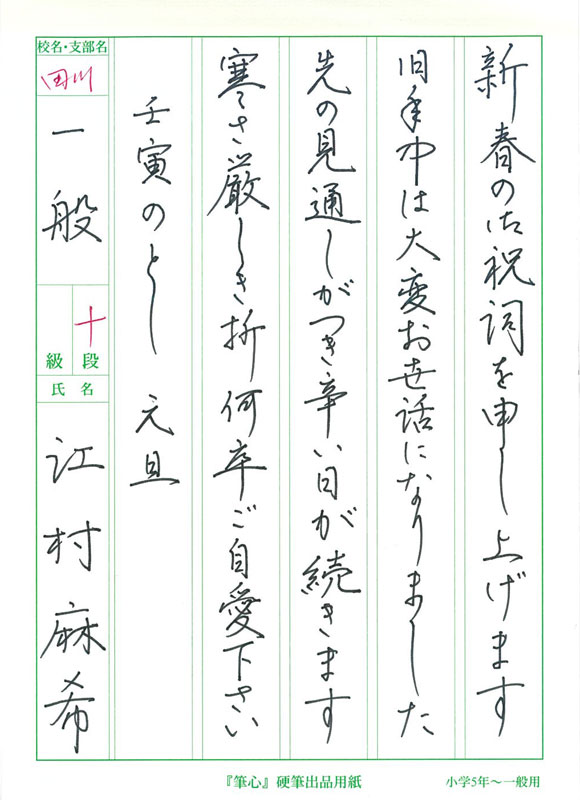 新春の御祝詞を申し上げます
旧年中は大変お世話になりました
先の見通しがつき辛い日が続きます
寒さ厳しき折何卒ご自愛下さい
壬寅のとし 元旦
校名・支部名
田川
一般
十
級 段
氏名
江村麻希
『筆心』硬筆出品用紙
小学5年〜一般用